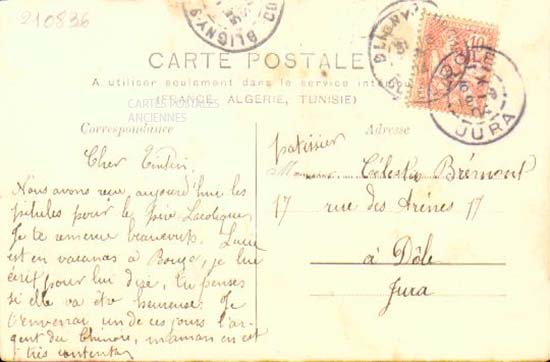 210836
BLIGNY-S
CARTE POSTALE
A utiliser seulement dans le service inté
(FRANCE, ALGÉRIE, TUNISIE)
CARTES POSTALES
ANCIENNES
Correspondance
Adresse
10
DOLE
JURA
Cher
Nous avons reçu aujourd'hui les
pilules pour le
Je te remercie beaucoup. Lucie
est en vacances à je lui
écrit pour lui dire, tu penses
si elle va être heureuse. Je
t'enverrai un de ces jours l'ar-
gent du maman en est
très contente
patissier
Monsieur Célestin Brémont
17 rue des Arènes 17
à Dôle
Jura